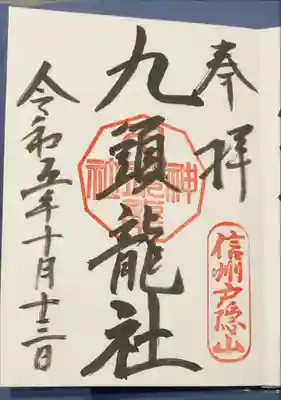 奉拝
信州戸隠山
九頭龍社
令和五年十月